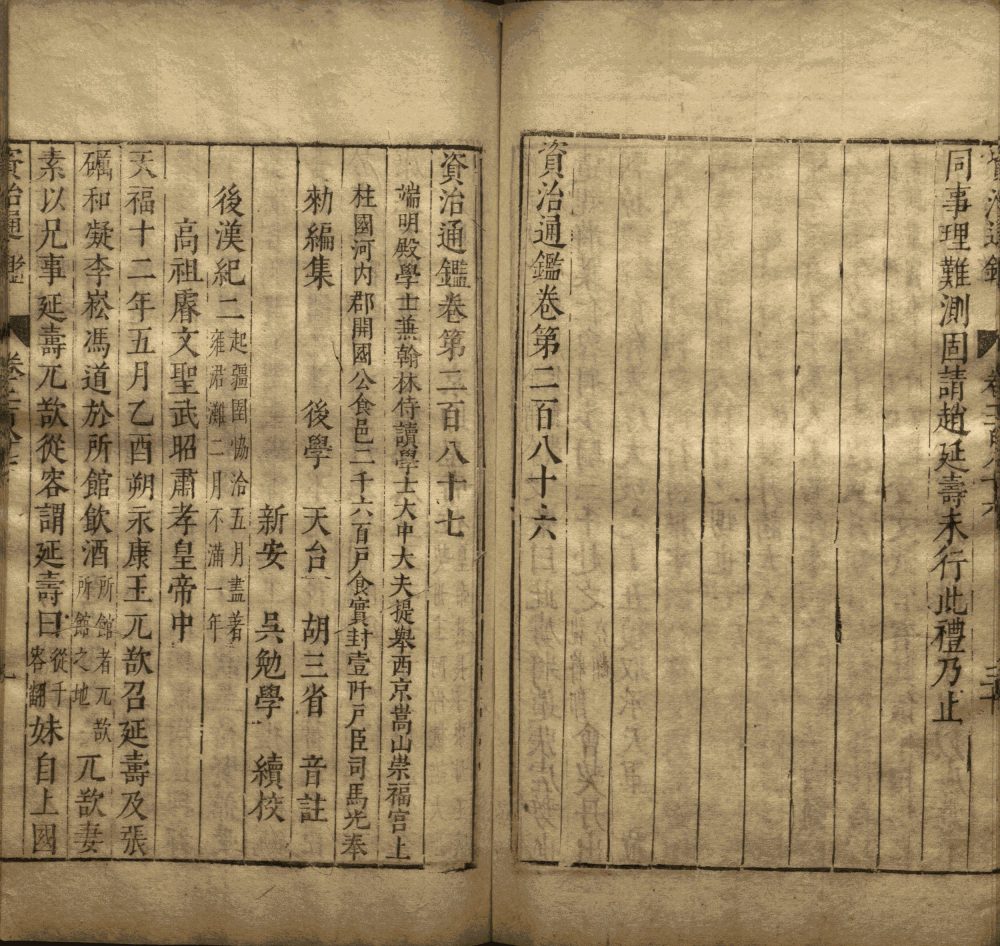 同事理難測固請趙延壽未行此禮乃止
資治通鑑卷第二百八十六
資治通鑑卷第二百八十七
端明殿學士兼翰林侍讀學士太中大夫提舉西京嵩山崇福宮上
柱國河内郡開國公食邑二千六百戶食實封壹阡戶臣司馬光奉
勑編集 後學 天台 胡三省 音註
新安 吳勉學 續校
後漢紀二起疆圉協洽五月盡著雍涒灘二月不滿一年
高祖睿文聖武昭肅孝皇帝中
天福十二年五月乙酉朔永康王兀欲召延壽及張
礪和凝李崧馮道於所館飲酒所館者兀欲所館之地兀欲妻
素以兄事延壽兀欲從容謂延壽曰從千容翻妹自上國
資治通鑑